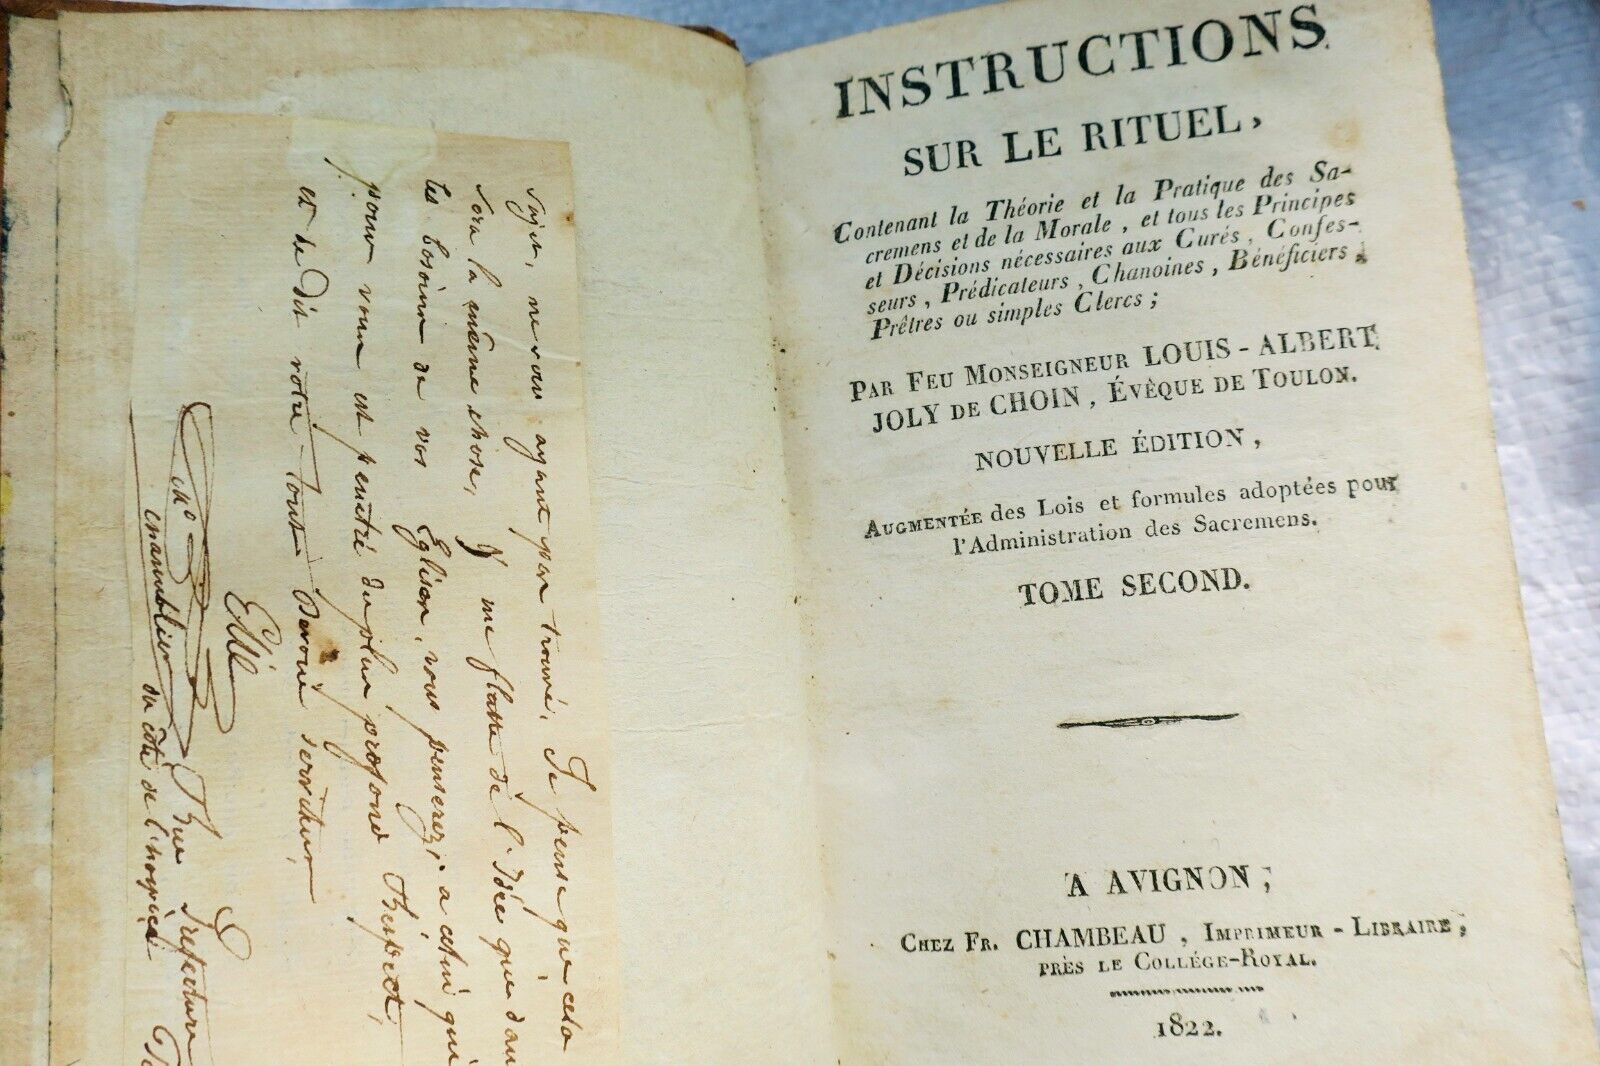 sujet, ne vous ayant pas trouvé. Je pense que cela
sera la même chose, je me flatte de l'idée que dans
les besoins de vos Eglises, vous penserez a celui qui
pour vous est penétré du plus profond Respect,
et de dit votre tout Devoué serviteur
Elié
Rue Prefecture
du côté de l'hospice
INSTRUCTIONS
SUR LE RITUEL,
Contenant la Théorie et la Pratique des Sa-
cremens et de la Morale, et tous les Principes
et Décisions nécessaires aux Curés, Confes-
seurs, Prédicateurs, Chanoines, Bénéficiers,
Prêtres ou simples Clercs;
PAR FEU MONSEIGNEUR LOUIS-ALBERT
JOLY DE CHOIN, ÉVÊQUE DE TOULON.
NOUVELLE ÉDITION,
AUGMENTÉE des Lois et formules adoptées pour
l'Administration des Sacremens.
TOME SECOND.
A AVIGNON;
CHEZ FR. CHAMBEAU, IMPRIMEUR-LIBRAIRE,
PRÈS LE COLLÉGE-ROYAL.
1822.